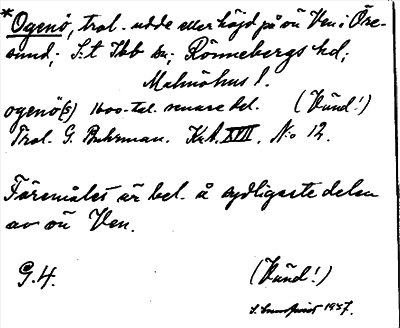 *Ogenö, trol. udde eller höjd på ön Ven i Öre-
sund; S:t Ibb sn; Rönnebergs hd;
Malmöhus l.
ogenö(s) 1600-tal. senare del. (Vänd!)
Trol. G. Buhrman. Krt. XVII. No 12.
Föremålet är bel. å sydligaste delen
av ön Ven.
G.4. (Vänd!)
1937.